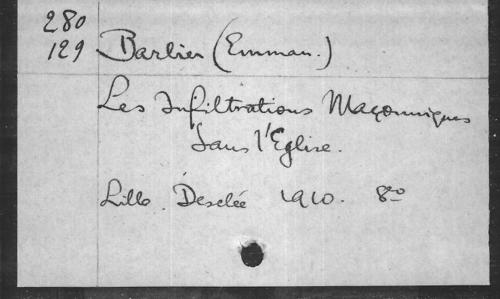 280
129 Barbier (Emman.)
Les Infiltrations Maçonniques
dans l'Eglise.
Lille. Desclée 1910. 8vo